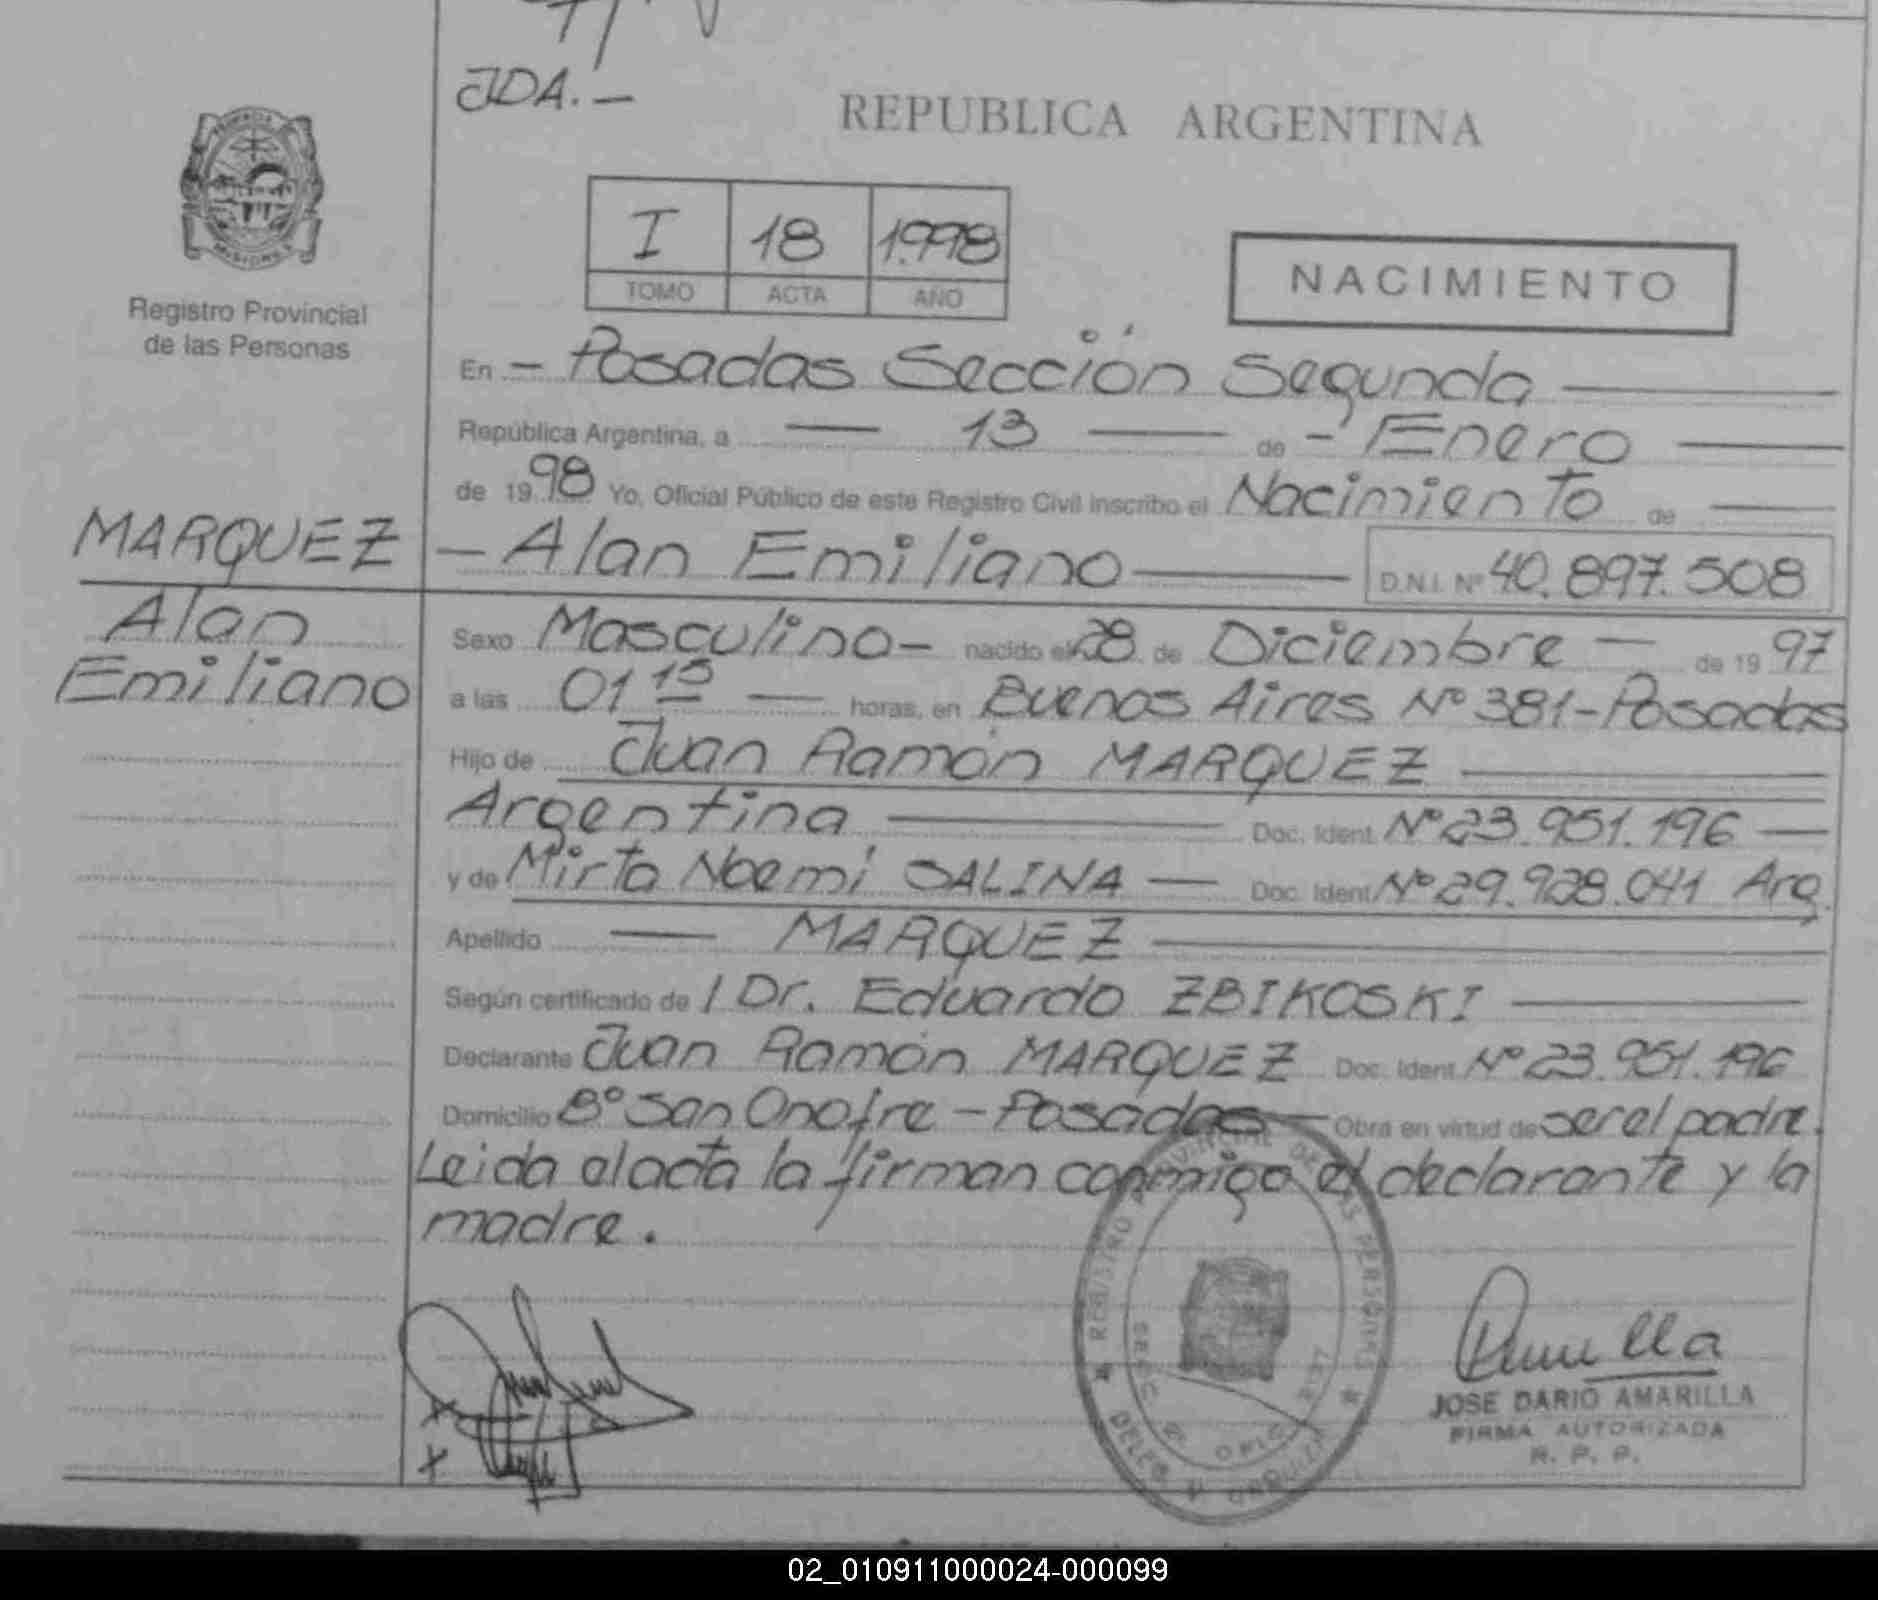 JDA.—
REPUBLICA ARGENTINA
I 18 1.998
TOMO ACTA AÑO
NACIMIENTO
Registro Provincial
de las Personas
En — Posadas Sección Segunda —
República Argentina, a — 13 — de — Enero —
de 1998 Yo, Oficial Público de este Registro Civil inscribo el Nacimiento de —
MARQUEZ
Alan
Emiliano
— Alan Emiliano — D.N.I. Nº 40.897.508
Sexo Masculino — nacido el 28 de Diciembre — de 1997
a las 01 15 — horas, en Buenos Aires Nº 381-Posadas
Hijo de Juan Ramón MARQUEZ —
Argentina — Doc. Ident. Nº 23.951.196 —
y de Mirta Noemí SALINA — Doc. Ident. Nº 29.928.041 Arg.
Apellido — MARQUEZ —
Según certificado de / Dr. Eduardo ZBIKOSKI —
Declarante Juan Ramón MARQUEZ Doc. Ident. Nº 23.951.196
Domicilio Bº San Onofre — Posadas — Obra en virtud de ser el padre.
Leida el acta la firman conmigo el declarante y la
madre.
REGISTRO PROVINCIAL DE LAS PERSONAS
JOSE DARIO AMARILLA
FIRMA AUTORIZADA
R. P. P.
02_010911000024-000099